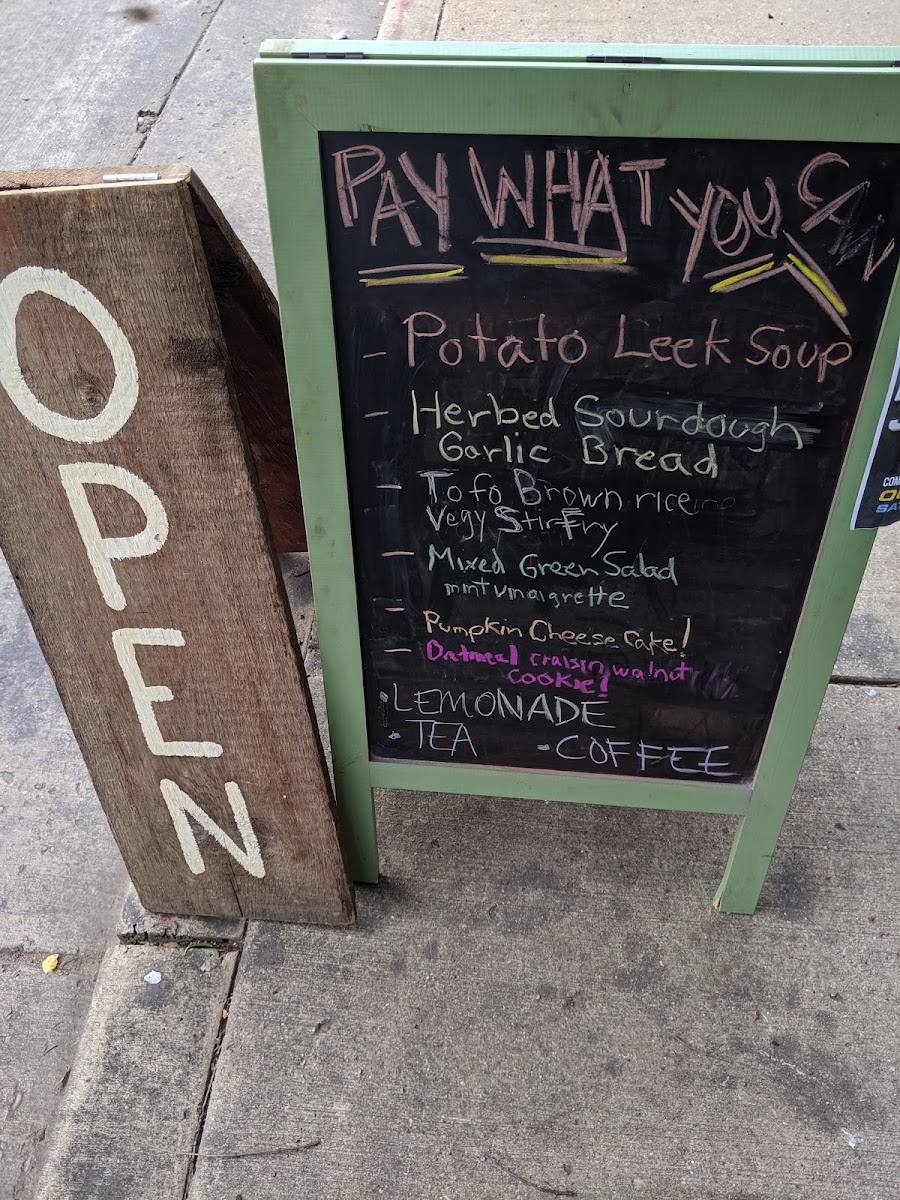 OPEN
PAY WHAT YOU CAN
- Potato Leek Soup
- Herbed Sourdough
Garlic Bread
- Tofo Brown rice
Vegy StirFry
- Mixed Green Salad
mnt vinaigrette
- Pumpkin Cheese Cake!
- Oatmeal craisin walnut
COOKIE!
• LEMONADE
• TEA • COFFEE